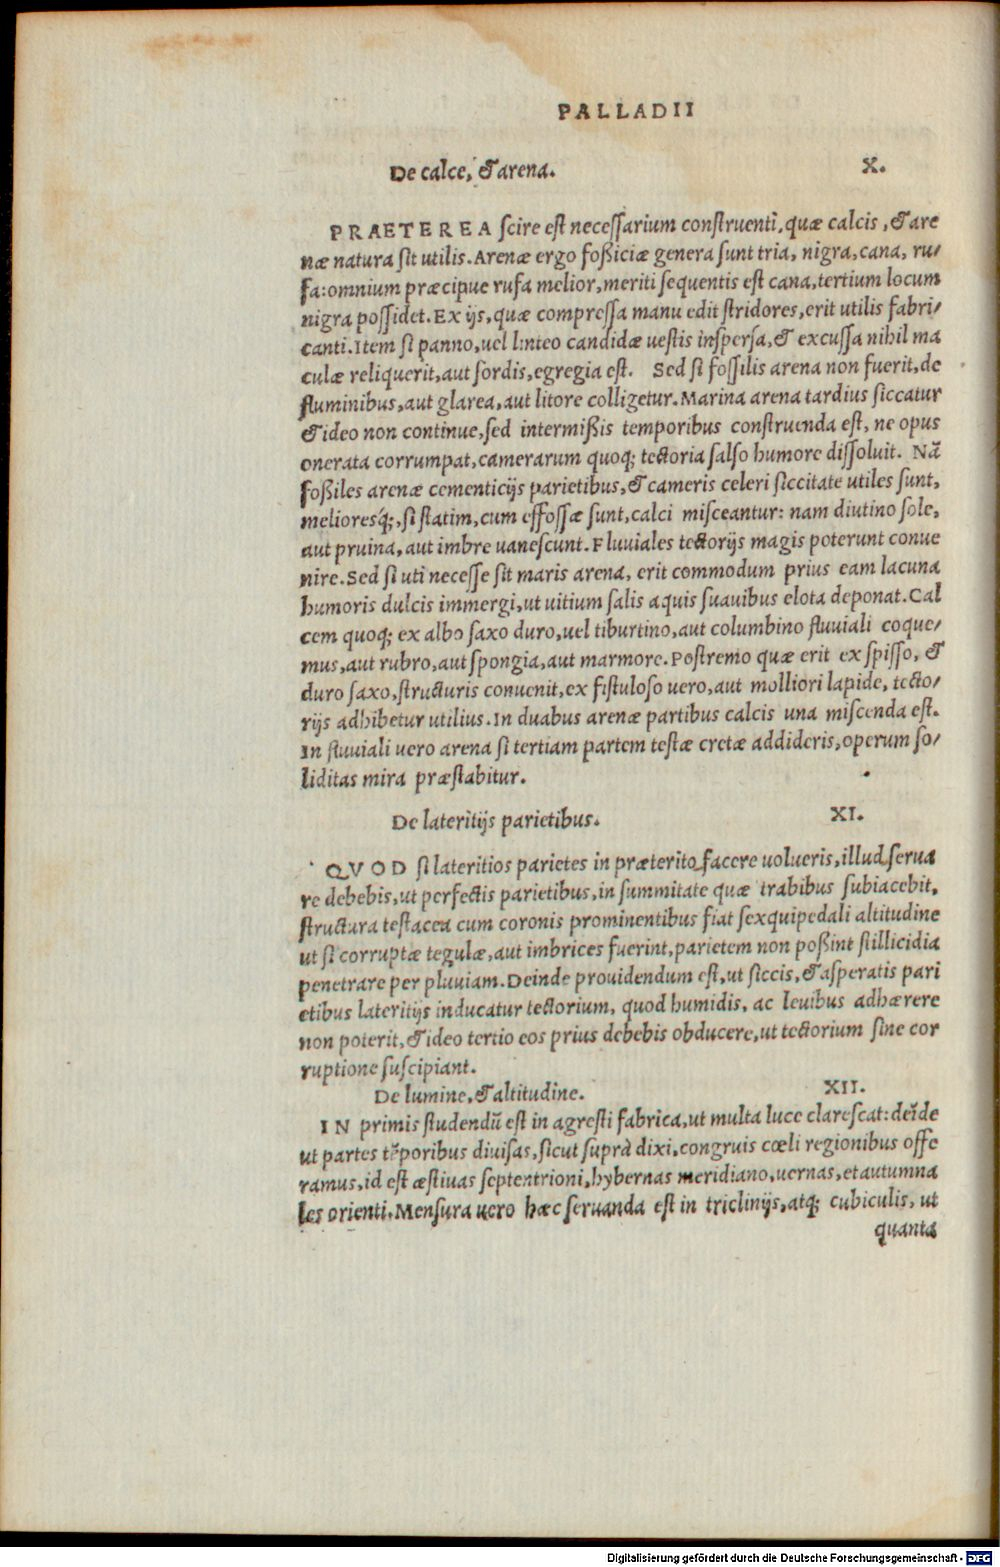 PALLADII
De calce, & arena. X.
PRAETEREA ſcire eſt neceſſarium conſtruenti, quæ calcis, & are
næ natura ſit utilis. Arenæ ergo foßiciæ genera ſunt tria, nigra, cana, ru/
fa: omnium præcipue rufa melior, meriti ſequentis eſt cana, tertium locum
nigra poſſidet. Ex ijs, quæ compreſſa manu edit ſtridores, erit utilis fabri/
canti. Item ſi panno, uel linteo candidæ ueſtis inſperſa, & excuſſa nihil ma
culæ reliquerit, aut ſordis, egregia eſt. Sed ſi foſſilis arena non fuerit, de
fluminibus, aut glarea, aut litore colligetur. Marina arena tardius ſiccatur
& ideo non continue, ſed intermißis temporibus conſtruenda eſt, ne opus
onerata corrumpat, camerarum quoq; tectoria ſalſo humore diſſoluit. Nā
foßiles arenæ cementicijs parietibus, & cameris celeri ſiccitate utiles ſunt,
melioresq́;, ſi ſtatim, cum effoſſæ ſunt, calci miſceantur: nam diutino ſole,
aut pruina, aut imbre uaneſcunt. Fluuiales tectorijs magis poterunt conue
nire. Sed ſi uti neceſſe ſit maris arena, erit commodum prius eam lacuna
humoris dulcis immergi, ut uitium ſalis aquis ſuauibus elota deponat. Cal
cem quoq; ex albo ſaxo duro, uel tiburtino, aut columbino fluuiali coque/
mus, aut rubro, aut ſpongia, aut marmore. Poſtremo quæ erit ex ſpiſſo, &
duro ſaxo, ſtructuris conuenit, ex fiſtuloſo uero, aut molliori lapide, tecto/
rijs adhibetur utilius. In duabus arenæ partibus calcis una miſcenda eſt.
In fluuiali uero arena ſi tertiam partem teſtæ cretæ addideris, operum ſo/
liditas mira præſtabitur.
De lateritijs parietibus. XI.
QVOD ſi lateritios parietes in prætorito facere uolueris, illud ſerua
re debebis, ut perfectis parietibus, in ſummitate quæ trabibus ſubiacebit,
ſtructura teſtacea cum coronis prominentibus fiat ſexquipedali altitudine
ut ſi corruptæ tegulæ, aut imbrices fuerint, parietem non poßint ſtillicidia
penetrare per pluuiam. Deinde prouidendum eſt, ut ſiccis, & aſperatis pari
etibus lateritijs inducatur tectorium, quod humidis, ac leuibus adhærere
non poterit, & ideo tertio eos prius debebis obducere, ut tectorium ſine cor
ruptione ſuſcipiant.
De lumine, & altitudine. XII.
IN primis ſtudendū eſt in agreſti fabrica, ut multa luce clareſcat: deīde
ut partes tēporibus diuiſas, ſicut ſuprà dixi, congruis cœli regionibus offe
ramus, id eſt æſtiuas ſeptentrioni, hybernas meridiano, uernas, et autumna
les orienti. Menſura uero hæc ſeruanda eſt in triclinijs, atq; cubiculis, ut
quanta
Digitalisierung gefördert durch die Deutsche Forschungsgemeinschaft - DFG